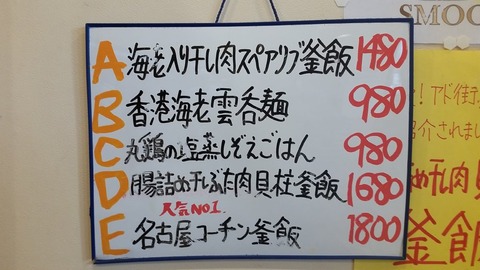 SMOO
A 海老入り干し肉スペアリブ釜飯 1480
B 香港海老雲呑麺 980
C 丸鶏の塩蒸しぞえごはん 980
D 腸詰め干ぶた肉貝柱釜飯 1680
人気NO1.
E 名古屋コーチン釜飯 1800
!アド街
紹介されまし
め干し肉
釜飯